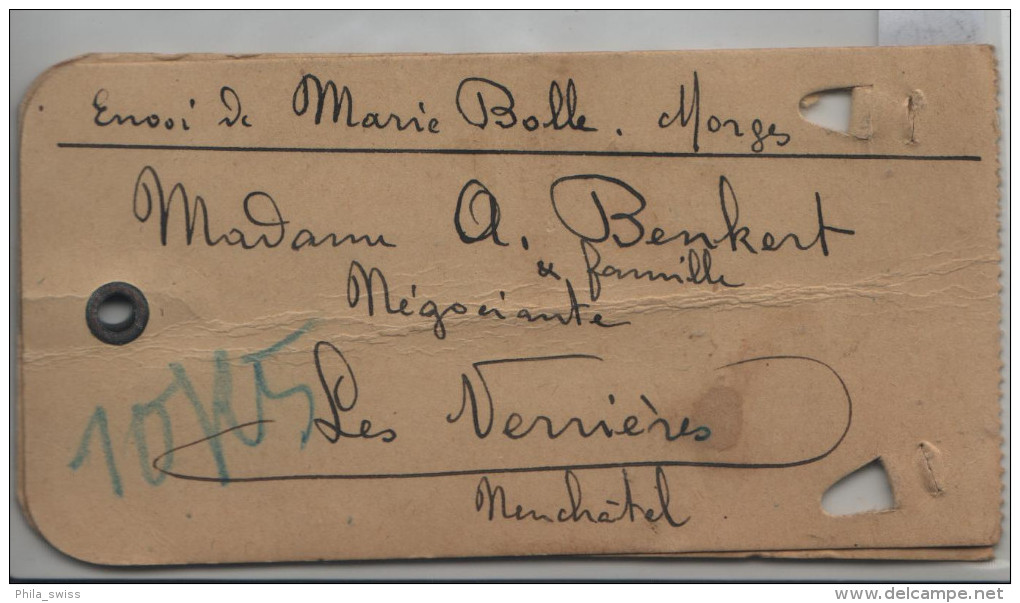 Envoi de Marie Bolle. Morges
Madame A. Benkert
& famille
Négociante
Les Verrières
Neuchâtel
Phila_swiss
www.delcampe.net